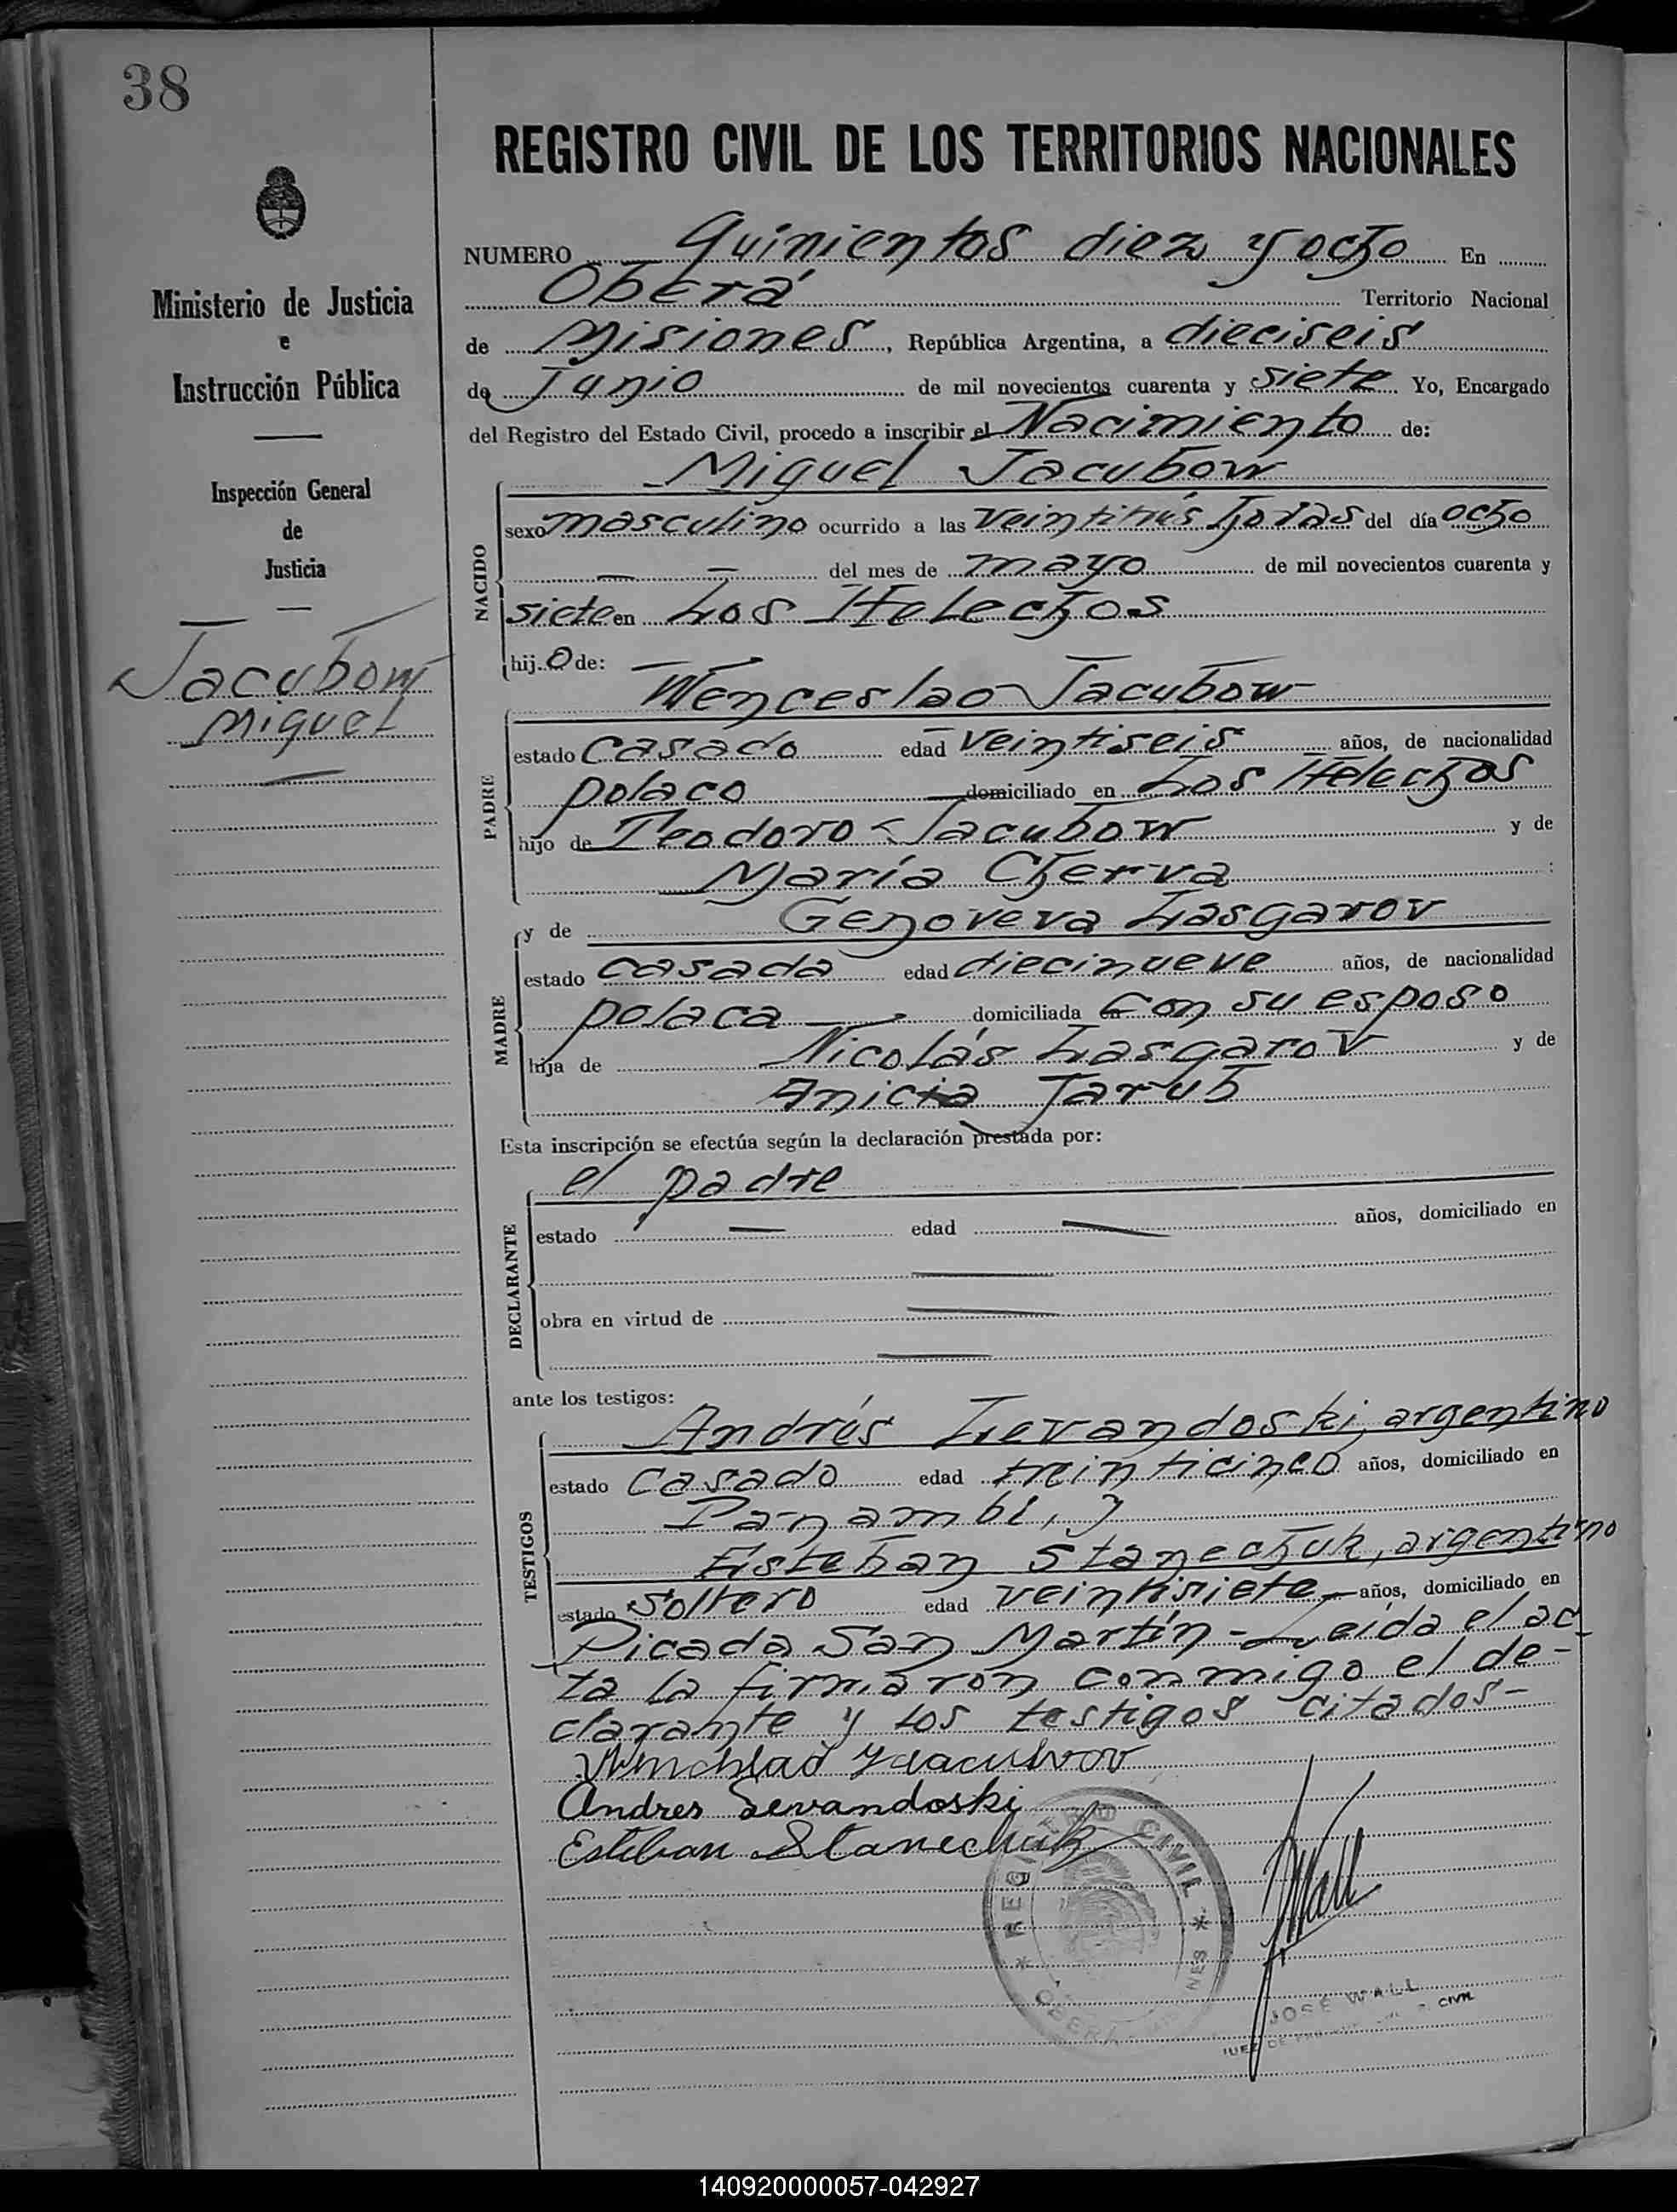 38
REGISTRO CIVIL DE LOS TERRITORIOS NACIONALES
Ministerio de Justicia
e
Instrucción Pública
Inspección General
de
Justicia
Jacubow
Miguel
NUMERO Quinientos diez y ocho En
Oberá Territorio Nacional
de Misiones, República Argentina, a dieciseis
de Junio de mil novecientos cuarenta y siete Yo, Encargado
del Registro del Estado Civil, procedo a inscribir el Nacimiento de:
Miguel Jacubow
NACIDO
sexo masculino ocurrido a las veintitrés horas del día ocho
del mes de mayo de mil novecientos cuarenta y
siete en Los Helechos
hij o de:
Wenceslao Jacubow
PADRE
estado casado edad veintiseis años, de nacionalidad
polaco domiciliado en Los Helechos
hijo de Teodoro Jacubow y de
María Cherva
y de Genoveva Lasgarov
MADRE
estado casada edad diecinueve años, de nacionalidad
polaca domiciliada con su esposo
hija de Nicolás Lasgarov y de
Anicia Jarub
Esta inscripción se efectúa según la declaración prestada por:
el padre
DECLARANTE
estado edad años, domiciliado en
obra en virtud de
ante los testigos:
TESTIGOS
Andrés Levandoski, argentino
estado casado edad treinticinco años, domiciliado en
Panambí, y
Esteban Stanechuk, argentino
estado soltero edad veintisiete años, domiciliado en
Picada San Martín - Leída el ac-
ta la firmaron conmigo el de-
clarante y los testigos citados-
Andres Levandoski
Esteban Stanechuk
REGISTRO CIVIL
OBERA
JWall
JOSÉ WALL
JUEZ DE PAZ CIVIL
140920000057-042927